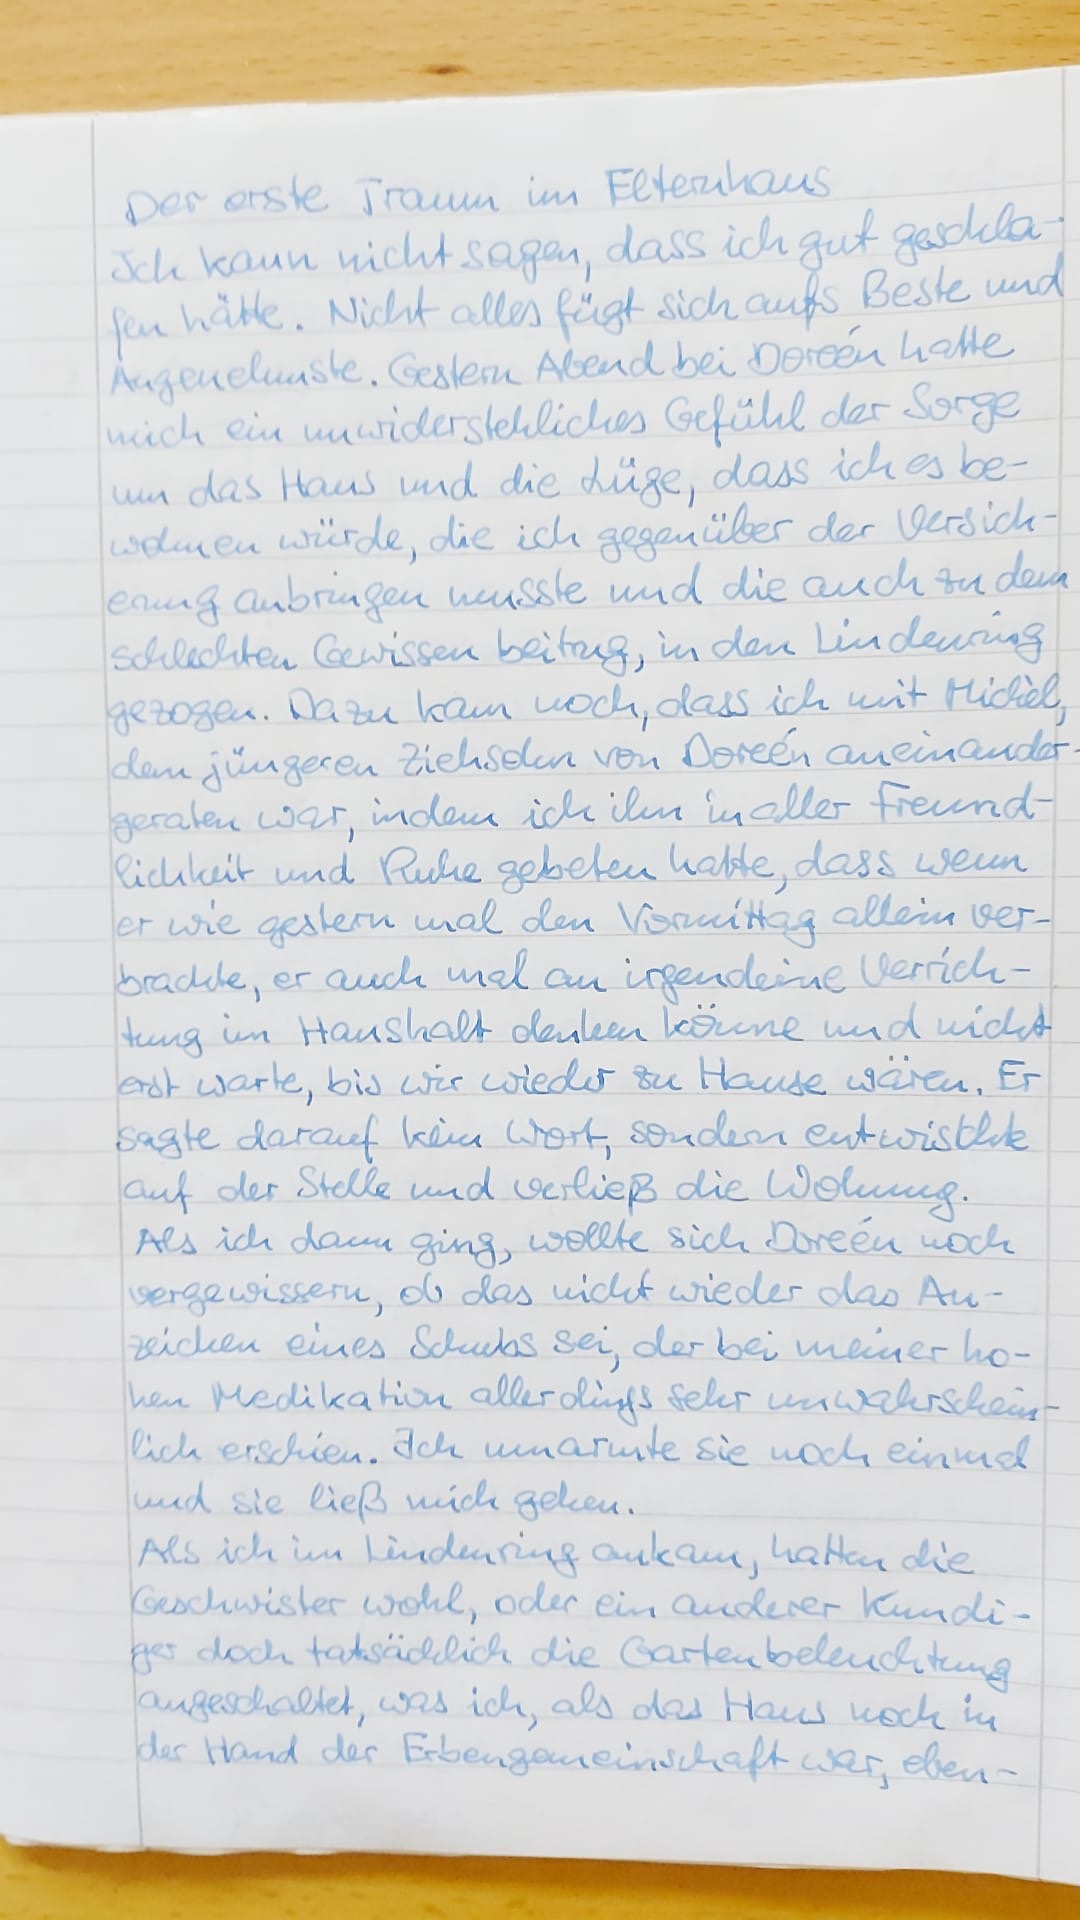 Der erste Traum im Elternhaus
Ich kann nicht sagen, dass ich gut geschla-
fen hätte. Nicht alles fügt sich aufs Beste und
Angenehmste. Gestern Abend bei Doreén hatte
mich ein unwiderstehliches Gefühl der Sorge
um das Haus und die Lüge, dass ich es be-
wohnen würde, die ich gegenüber der Versich-
erung anbringen musste und die auch zu dem
schlechten Gewissen beitrug, in den Lindenring
gezogen. Dazu kam noch, dass ich mit Michél,
dem jüngeren Ziehsohn von Doreén aneinander-
geraten war, indem ich ihn in aller Freund-
lichkeit und Ruhe gebeten hatte, dass wenn
er wie gestern mal den Vormittag allein ver-
brachte, er auch mal an irgendeine Verrich-
tung im Haushalt denken könne und nicht
erst warte, bis wir wieder zu Hause wären. Er
sagte darauf kein Wort, sondern entwischte
auf der Stelle und verließ die Wohnung.
Als ich dann ging, wollte sich Doreén noch
vergewissern, ob das nicht wieder das An-
zeichen eines Schubs sei, der bei meiner ho-
hen Medikation allerdings sehr unwahrschein-
lich erschien. Ich umarmte sie noch einmal
und sie ließ mich gehen.
Als ich im Lindenring ankam, hatten die
Geschwister wohl, oder ein anderer Kundi-
ger doch tatsächlich die Gartenbeleuchtung
angeschaltet, was ich, als das Haus noch in
der Hand der Erbengemeinschaft war, eben-